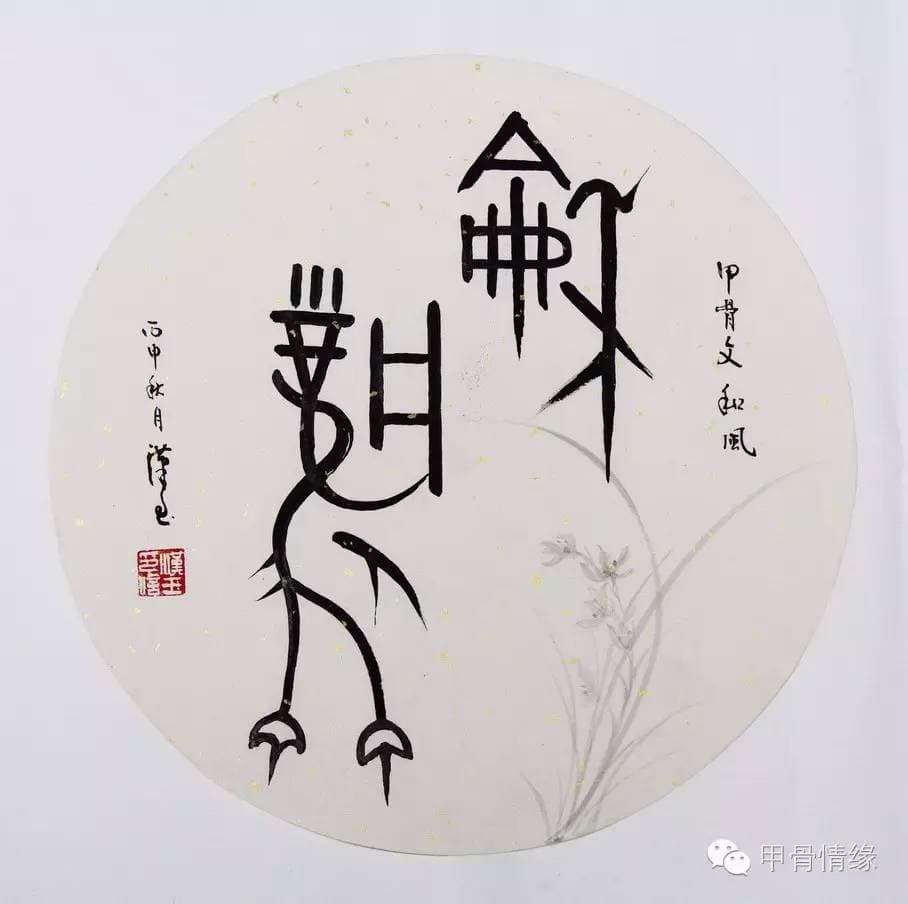 龢風
甲骨文和風
丙申秋月漢玉
甲骨情缘